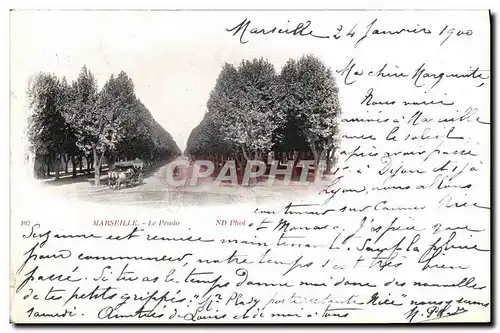 Marseille 24 Janvier 1900
Ma chère Marguerite,
Nous voici
arrivés à Marseille
avec le soleil
après avoir passé
à Dijon déjà
Lyon, nous allons
continuer sur Cannes Nice
CARPEDIEM
102 MARSEILLE. - Le Prado ND Phot
et Monaco. J'espère que
Suzanne est remise maintenant. Sauf la fièvre
pour commencer, notre temps s'est très bien
passé. Si tu as le temps donne moi donc des nouvelles
de tes petits grippés: Mr Plady poste restante Nice nous y serons
samedi. Amitiés de Louis et de moi à tous